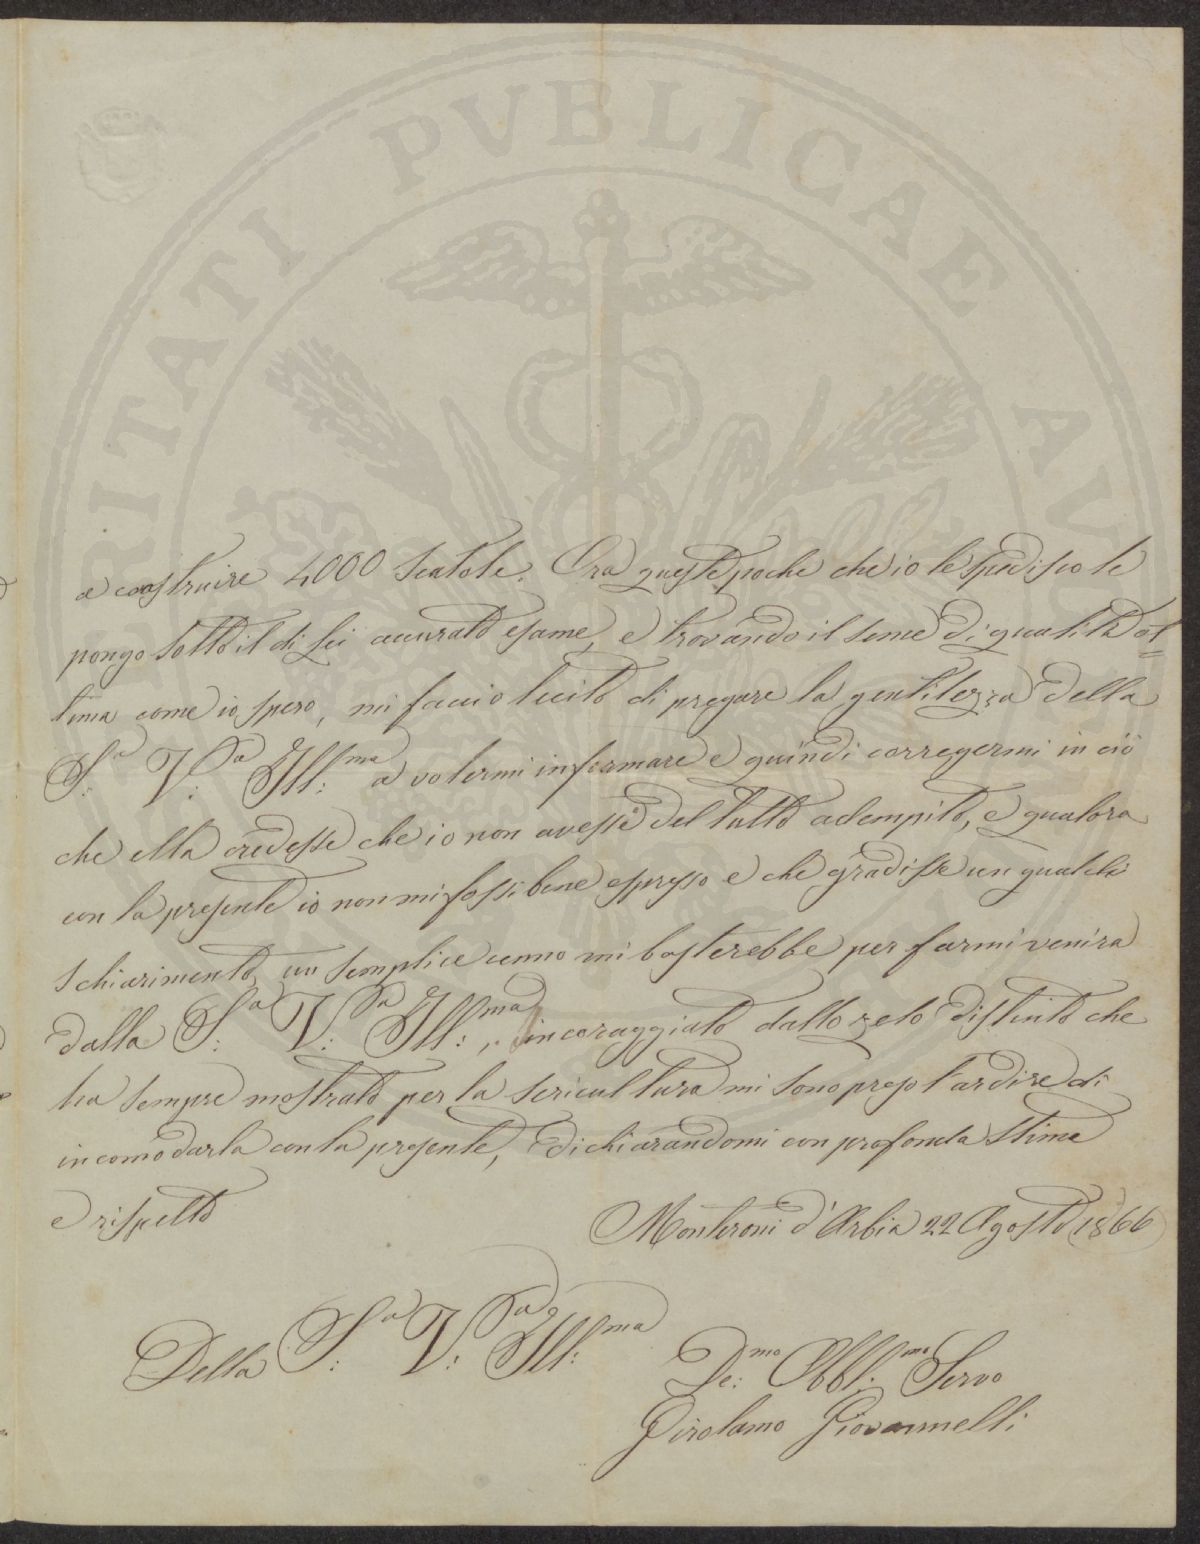 a costruire 4000 scatole. Ora queste poche che io le spedisco le
pongo sotto il di Lei accurato esame, e trovando il seme di qualità ot=
tima come io spero, mi faccio lecito di pregare la gentilezza della
S.a V.a Ill.ma a volermi informare e quindi corregermi in ciò
che ella credesse che io non avessi del tutto adempito, e qualora
con la presente io non mi fossi bene espresso e che gradisse un qualche
schiarimento, un semplice cenno mi basterebbe per farmi venire
dalla S.a V.a Ill.ma, incoraggiato dallo zelo distinto che
ha sempre mostrato per la sericultura mi sono preso l'ardire di
incomodarla con la presente, dichiarandomi con profonda stima
e rispetto
Monteroni d'Arbia 22 Agosto 1866
Della S.a V.a Ill.ma
De.mo Obbl.mo Servo
Girolamo Giovannelli
RITATI PVBLICAE AV